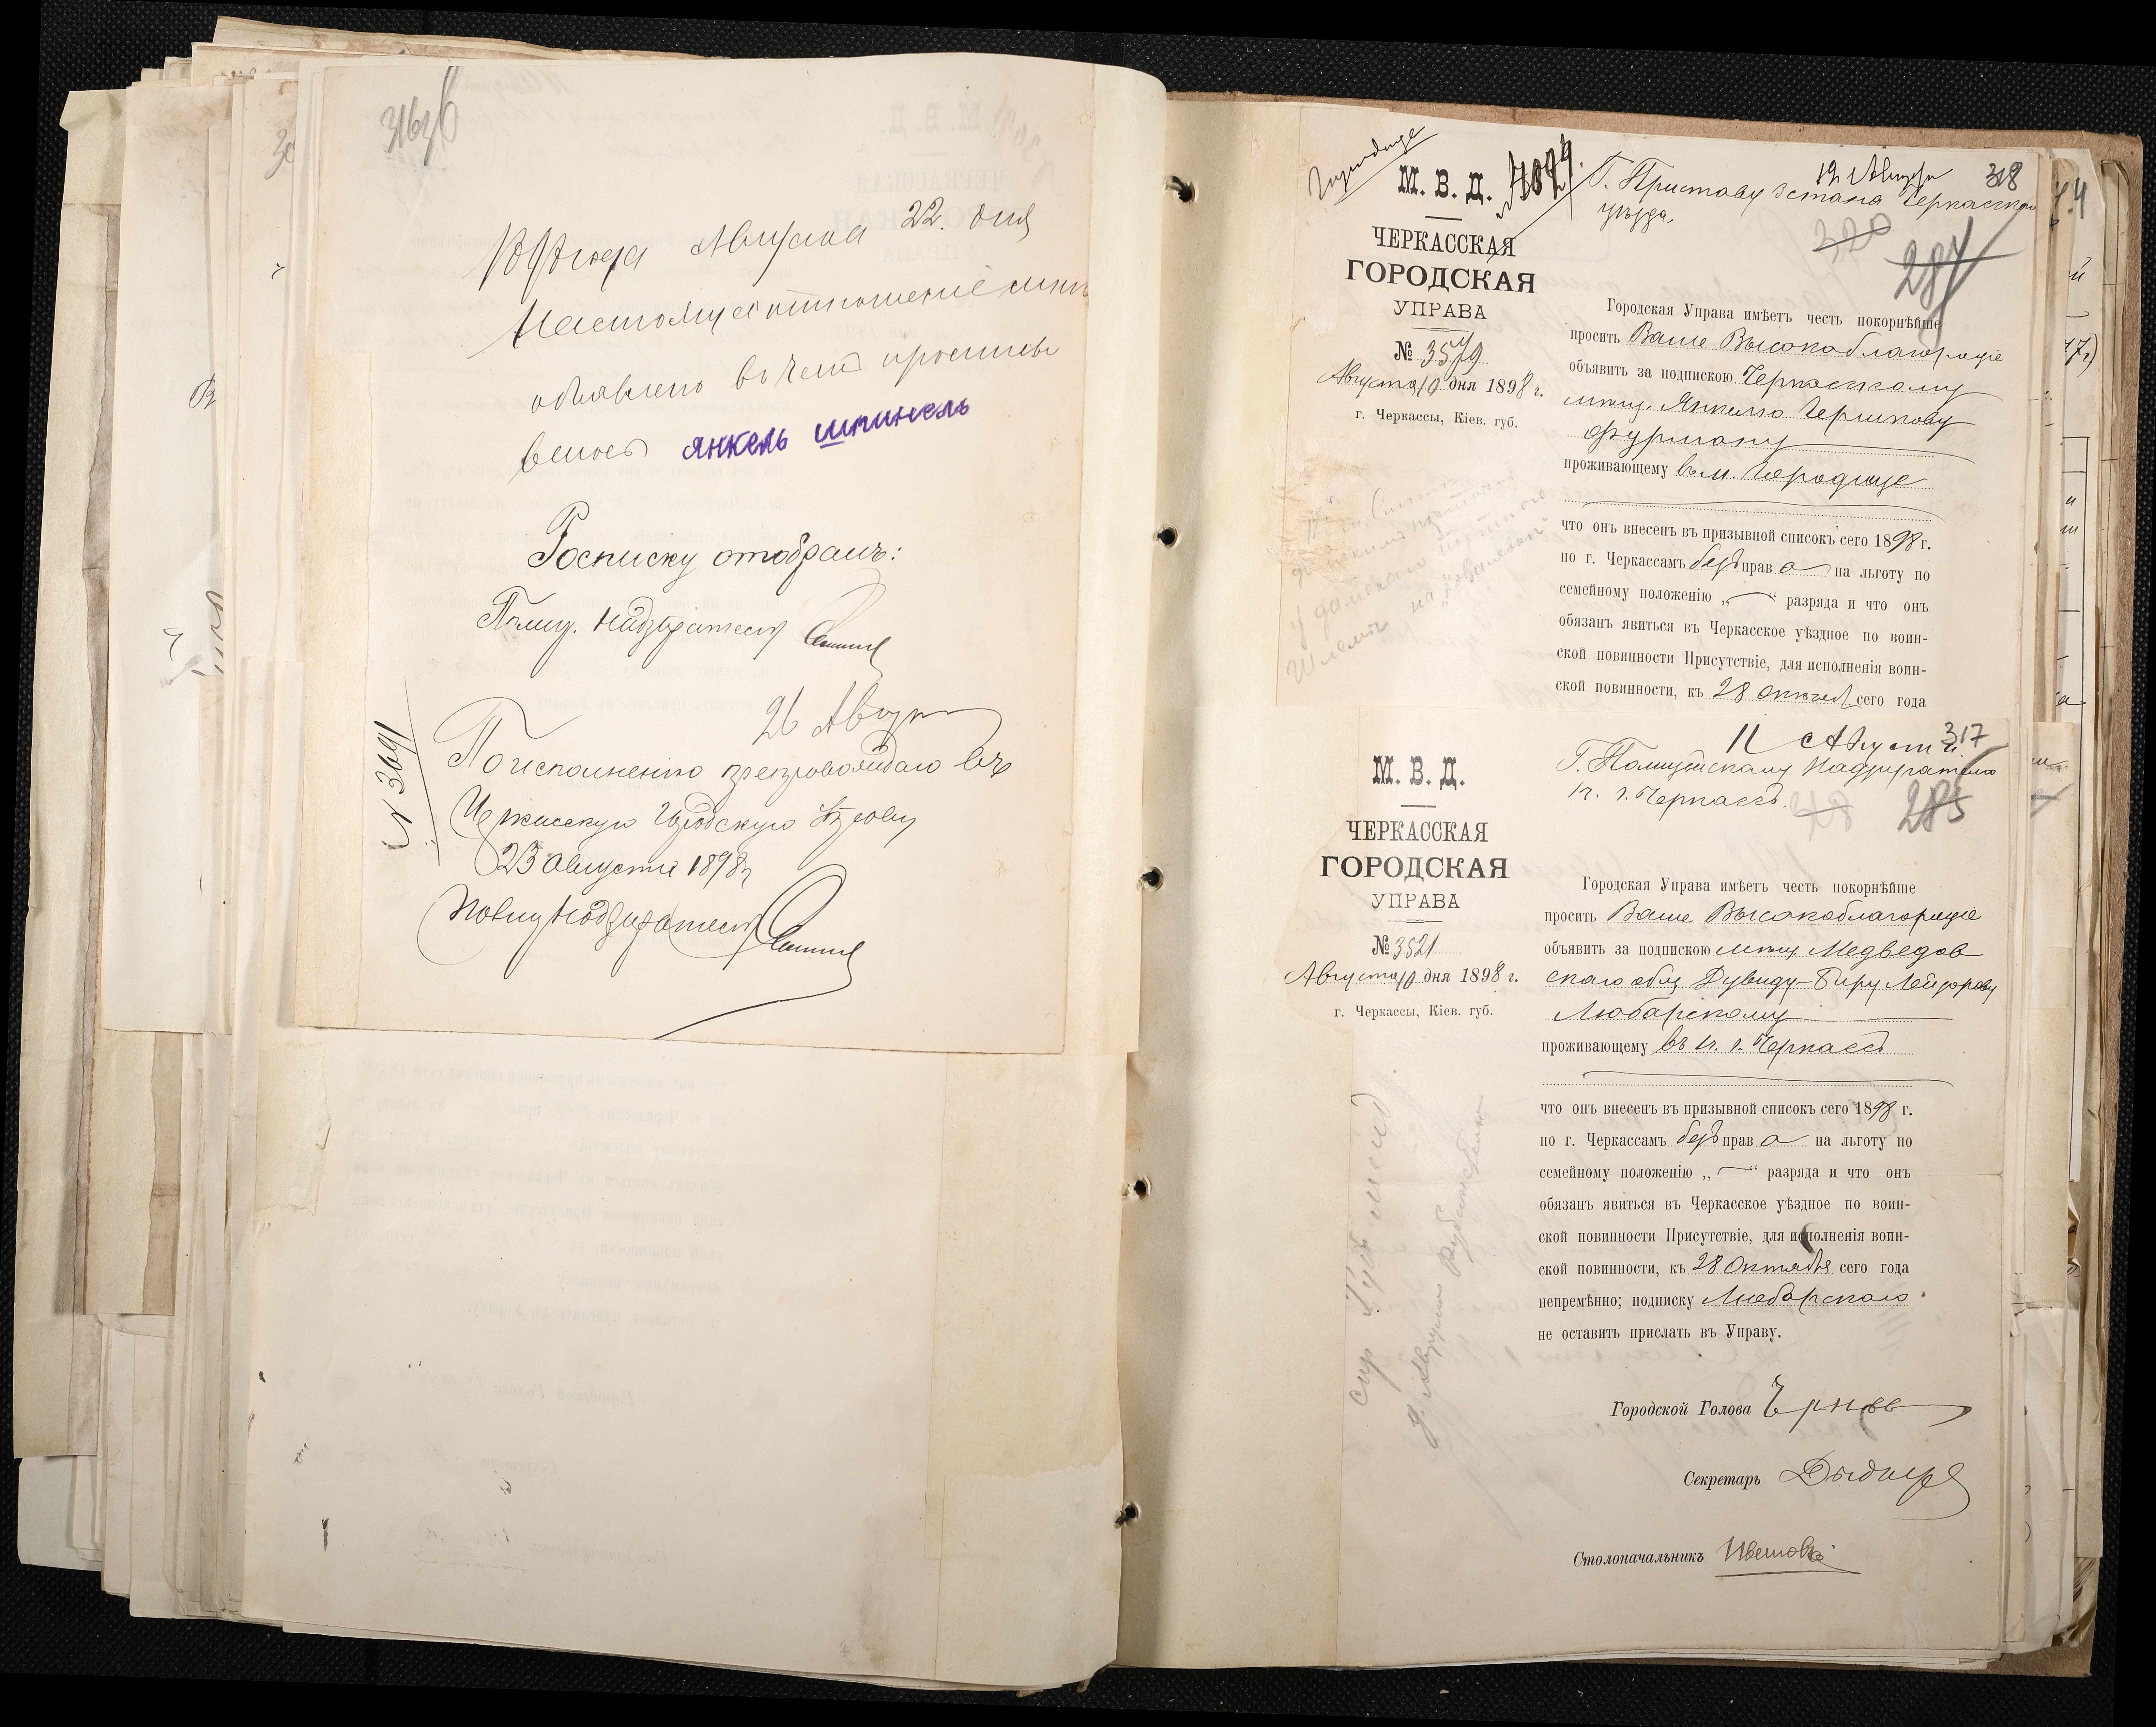 1898 года Августа 22. дня
Настоящее отношение мнѣ
объявлено въ чемъ
янкель шпинель
Росписку отобралъ:
Полиц. Надзиратель
26 Август
№ 3691
По исполненію препровождаю въ
Черкасскую Городскую Управу
23 августа 1898 г
Полиц Надзиратель
М. В. Д.
19 Августа
318
Г. Приставу 3 стана Черкасскаго
уѣзда.
320
287
ЧЕРКАССКАЯ
ГОРОДСКАЯ
УПРАВА
№ 3519
Августа 10 дня 1898 г.
г. Черкассы, Кіев. губ.
Городская Управа имѣетъ честь покорнѣйше
просить Ваше Высокоблагородіе
объявить за подпискою Черкасскому
мѣщ. Янкелю Гершкову
Фурману
проживающему въ м. Городище
что онъ внесенъ въ призывной списокъ сего 1898 г.
по г. Черкассамъ безъ права на льготу по
семейному положенію „—“ разряда и что онъ
обязанъ явиться въ Черкасское уѣздное по воин-
ской повинности Присутствіе, для исполненія воин-
ской повинности, къ 28 октяб сего года
11 Августа
317
М. В. Д.
Г. Полицейскому Надзирателю
г. Черкассъ.
285
ЧЕРКАССКАЯ
ГОРОДСКАЯ
УПРАВА
№ 3521
Августа 10 дня 1898 г.
г. Черкассы, Кіев. губ.
Городская Управа имѣетъ честь покорнѣйше
просить Ваше Высокоблагородіе
объявить за подпискою мѣщ Медведов
скаго общ Дувиду-Биру Лейзорову
Любарскому
проживающему въ г. Черкассъ
что онъ внесенъ въ призывной списокъ сего 1898 г.
по г. Черкассамъ безъ права на льготу по
семейному положенію „—“ разряда и что онъ
обязанъ явиться въ Черкасское уѣздное по воин-
ской повинности Присутствіе, для исполненія воин-
ской повинности, къ 28 Октября сего года
непремѣнно; подписку Любарскаго
не оставить прислать въ Управу.
Городской Голова
Секретарь
Столоначальникъ